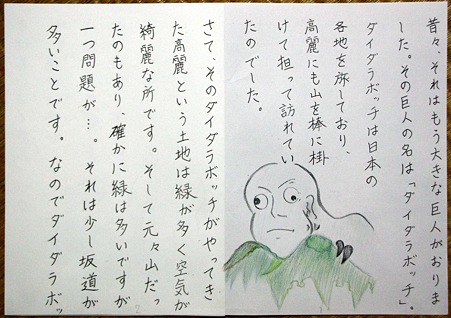 昔々、それはもう大きな巨人がおりま
した。その巨人の名は「ダイダラボッチ」。
ダイダラボッチは日本の
各地を旅しており、
高麗にも山を棒に掛
けて担って訪れてい
たのでした。
さて、そのダイダラボッチがやってき
た高麗という土地は緑が多く空気が
綺麗な所です。そして元々山だっ
たのもあり、確かに緑は多いですが
一つ問題が…。それは少し坂道が
多いことです。なのでダイダラボッ
2